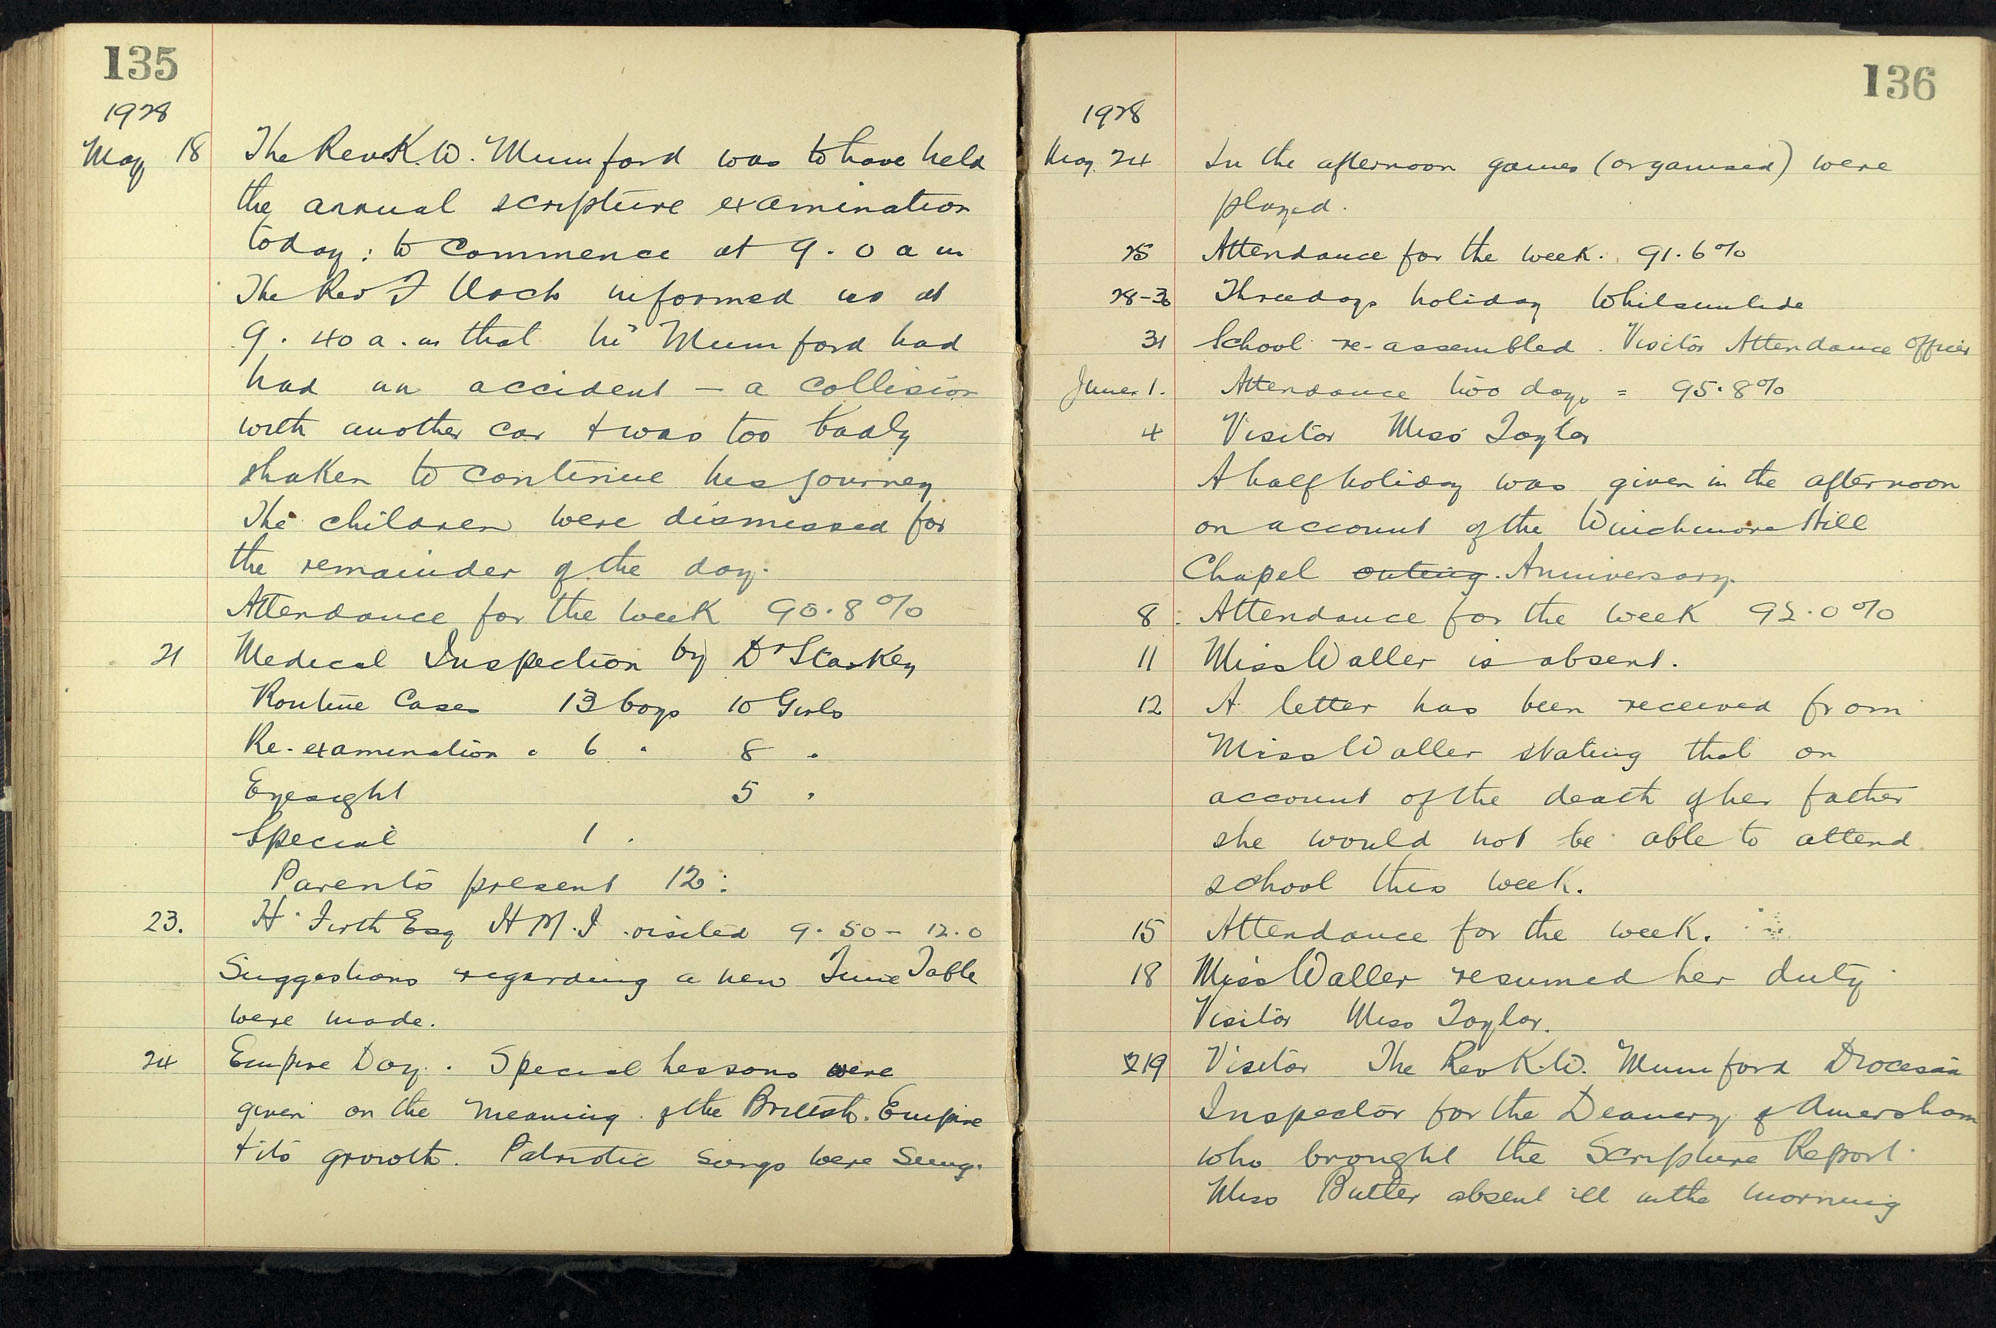 135
1928
May 18 The Rev K. W. Mumford was to have held
the annual scripture examination
today: to commence at 9.0 a m
The Rev F informed us at
9.40 a.m that Mr Mumford had
had an accident – a collision
with another car & was too badly
shaken to continue his journey
The children were dismissed for
the remainder of the day.
Attendance for the week 90.8%
21 Medical Inspection by Dr Starkey
Routine Cases 13 boys 10 Girls
Re-examination " 6 " 8 "
Eyesight 5 "
Special 1 "
Parents present 12.
23. H. Firth Esq H M.I. visited 9.50 – 12.0
Suggestions regarding a new Time Table
were made.
24 Empire Day. Special Lessons were
given on the meaning of the British Empire
& its growth. Patriotic songs were sung.
136
1928
May 24 In the afternoon games (organised) were
played.
25 Attendance for the week. 91.6%
28-30 Three days holiday Whitsuntide
31 School re-assembled. Visitor Attendance Officer
June 1. Attendance two days = 95.8%
4 Visitor Miss Taylor
A half holiday was given in the afternoon
on account of the Winchmore Hill
Chapel outing. Anniversary.
8. Attendance for the week 92.0%
11 Miss Waller is absent.
12 A letter has been received from
Miss Waller stating that on
account of the death of her father
she would not be able to attend
school this week.
15 Attendance for the week.
18 Miss Waller resumed her duty
Visitor Miss Taylor.
19 Visitor The Rev K.W. Mumford Diocesan
Inspector for the Deanery of Amersham
who brought the Scripture Report.
Miss Butler absent ill in the morning